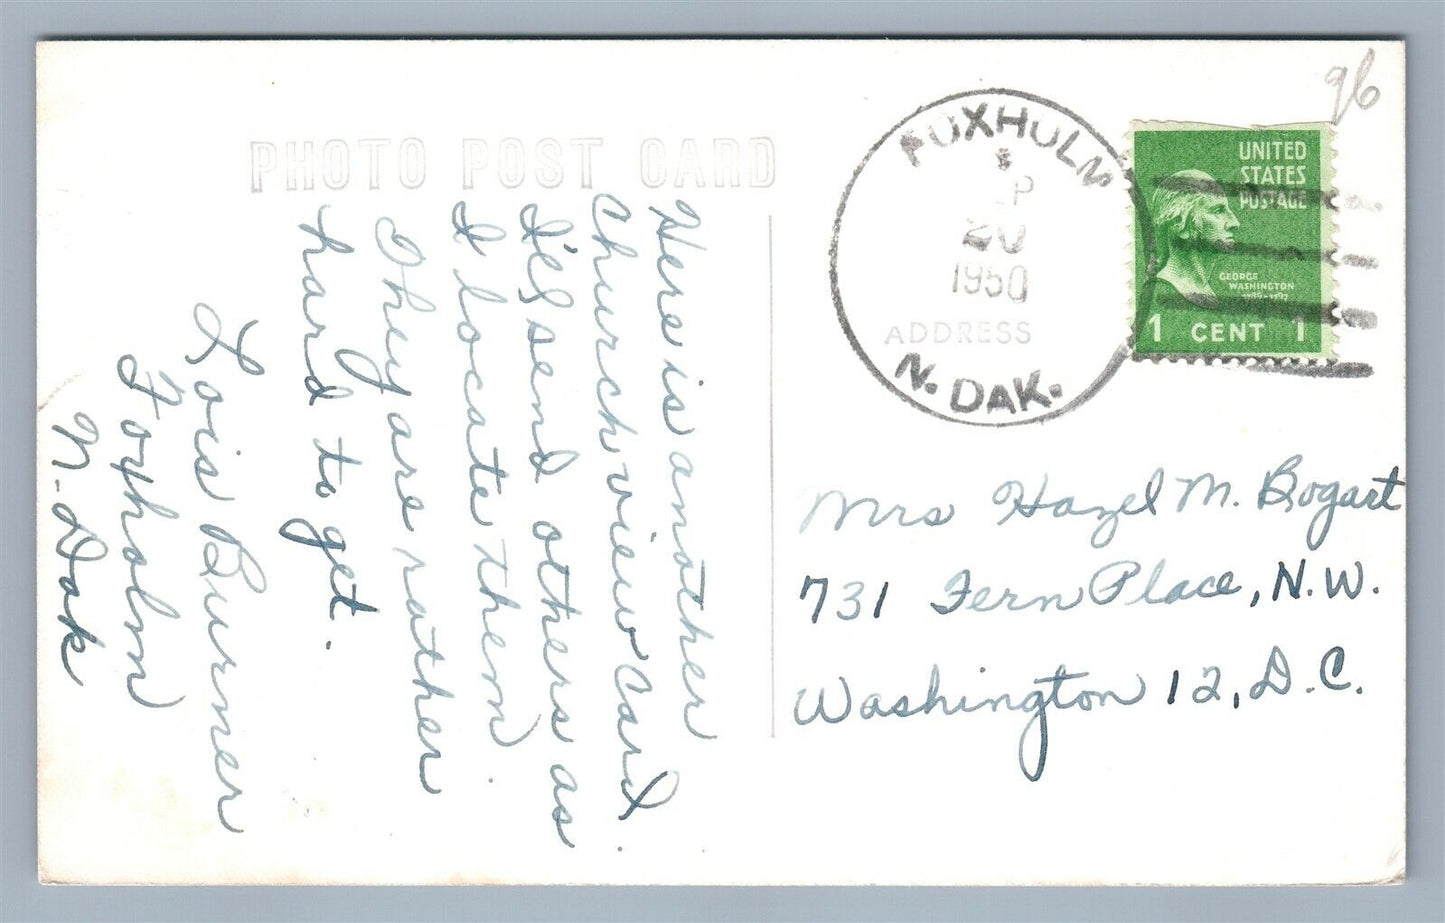 PHOTO POST CARD
Here is another
Church view card.
I'll send others as
I locate them.
They are rather
hard to get.
Lois Burner
Foxholm
N-Dak
FOXHOLM
SEP
20
1950
N. DAK.
ADDRESS
UNITED
STATES
POSTAGE
GEORGE
WASHINGTON
1 CENT 1
96
Mrs Hazel M. Bogart
731 Fern Place, N.W.
Washington 12, D.C.